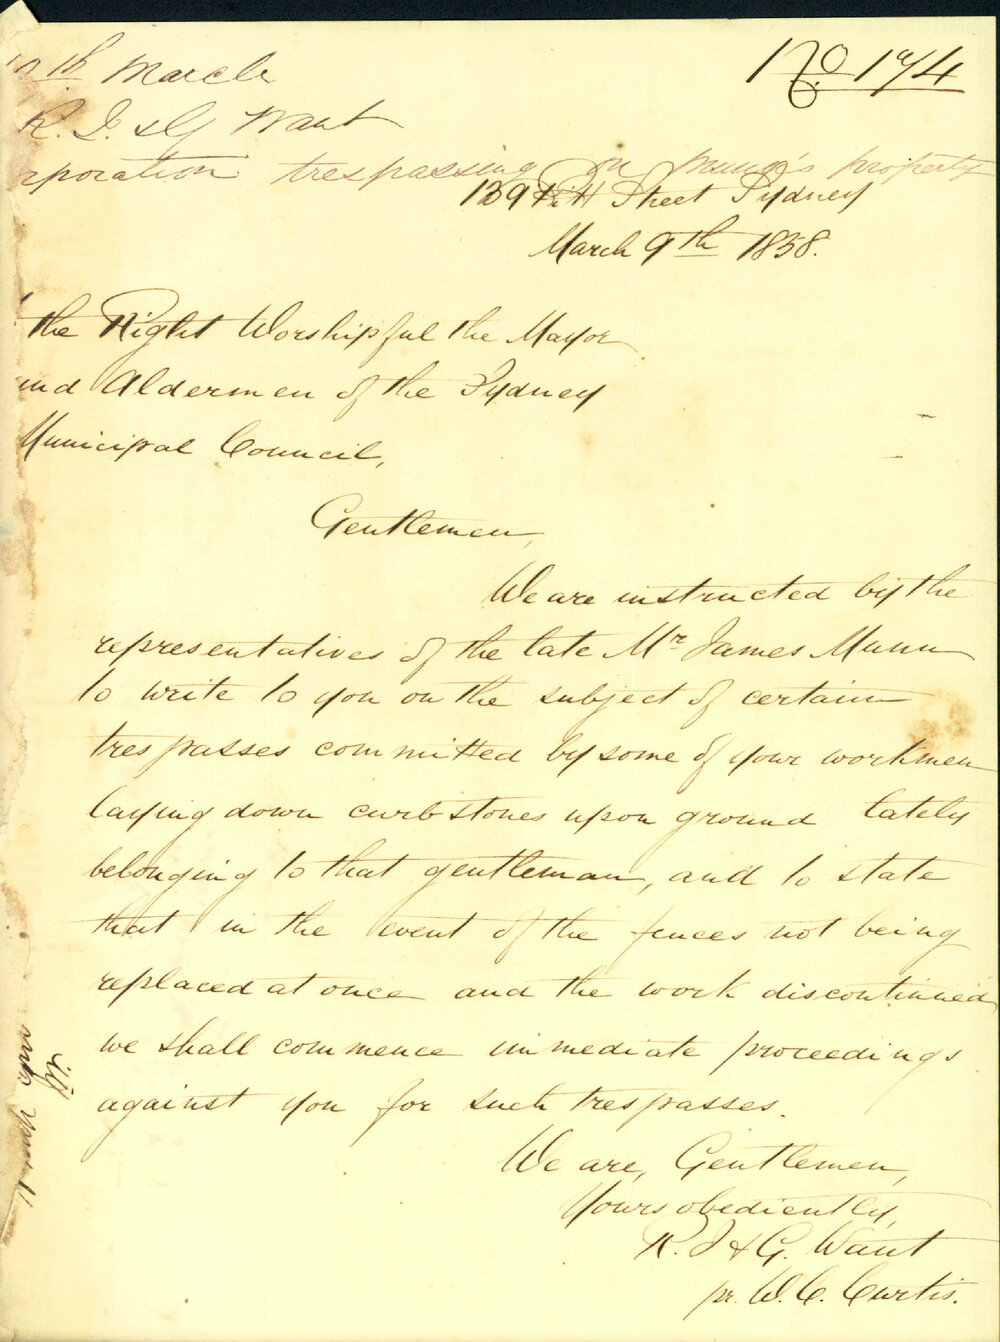 10th March
R. J. & G Want
rporation trespassing on Munn's property
No 174
139 Pitt Street Sydney
March 9th 1858.
the Right Worshipful the Mayor
and Aldermen of the Sydney
Municipal Council,
Gentlemen,
We are instructed by the
representatives of the late Mr James Munn
to write to you on the subject of certain
trespasses committed by some of your workmen
laying down curbstones upon ground lately
belonging to that gentleman, and to state
that in the event of the fences not being
replaced at once and the work discontinued
we shall commence immediate proceedings
against you for such trespasses.
We are, Gentlemen,
Yours obediently,
R. J & G. Want
pr. W. C. Curtis.